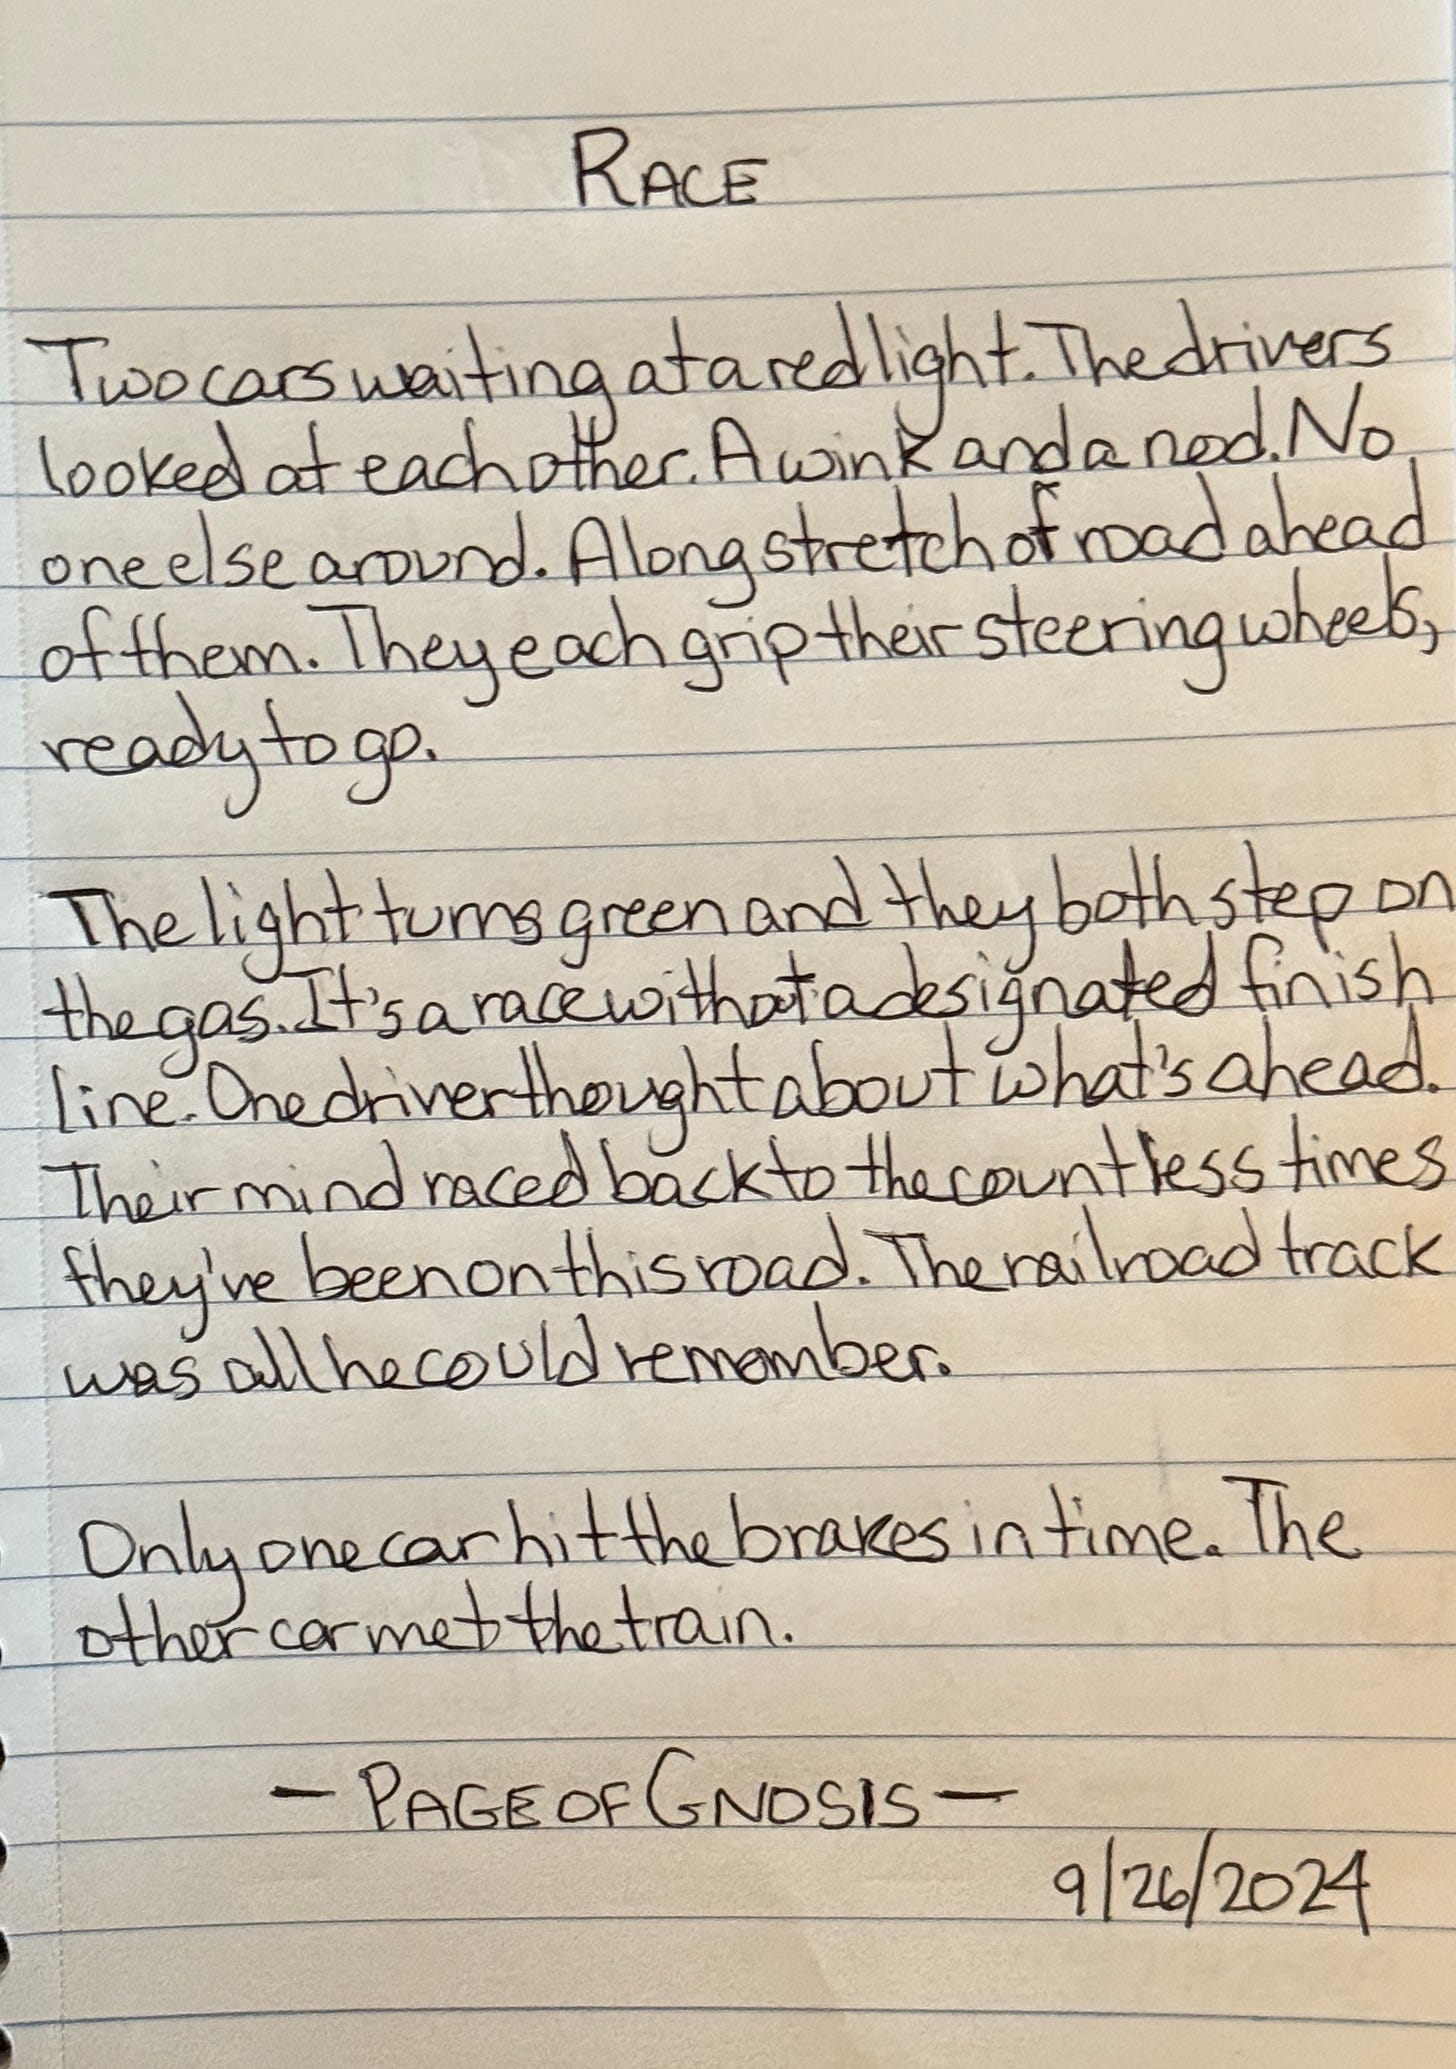 RACE
Two cars waiting at a red light. The drivers
looked at each other. A wink and a nod. No
one else around. A long stretch of road ahead
of them. They each grip their steering wheels,
ready to go.
The light turns green and they both step on
the gas. It's a race without a designated finish
line. One driver thought about what's ahead.
Their mind raced back to the countless times
they've been on this road. The railroad track
was all he could remember.
Only one car hit the brakes in time. The
other car met the train.
- PAGE OF GNOSIS -
9/26/2024